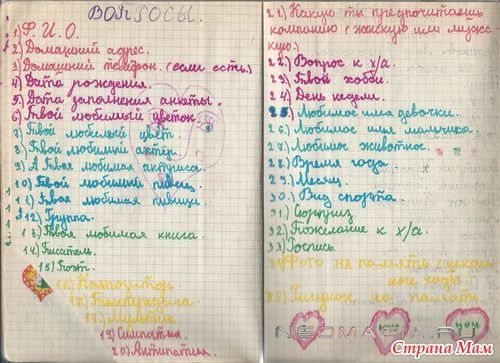 ВОПРОСЫ.
1) Ф. И. О.
2) Домашний адрес.
3) Домашний телефон. (если есть.)
4) Дата рождения.
5) Дата заполнения анкеты.
6) Твой любимый цветок.
7) Твой любимый цвет.
8) Твой любимый актёр.
9) А твоя любимая актриса.
10) Твой любимый певец.
11) Твоя любимая певица.
12) Группа.
13) Твоя любимая книга.
14) Писатель.
15) Поэт.
16) Композитор.
17) Телепередача.
18) Мультик
19) Симпатия.
20) Антипатия.
21) Какую ты предпочитаешь
компанию (женскую или мужск
кую.)
22) Вопрос к х/а.
23) Твой хобби.
24) День недели.
25) Любимое имя девочки.
26) Любимое имя мальчика.
27) Любимое животное.
28) Время года.
29) Месяц.
30.) Вид спорта.
31) Сюрприз
32) Пожелание к х/а.
33) Роспись.
34) Фото на память (школь
ные годы)
35) Рисунок на память.
you
NEOMAGIA.RU
Страна Мам